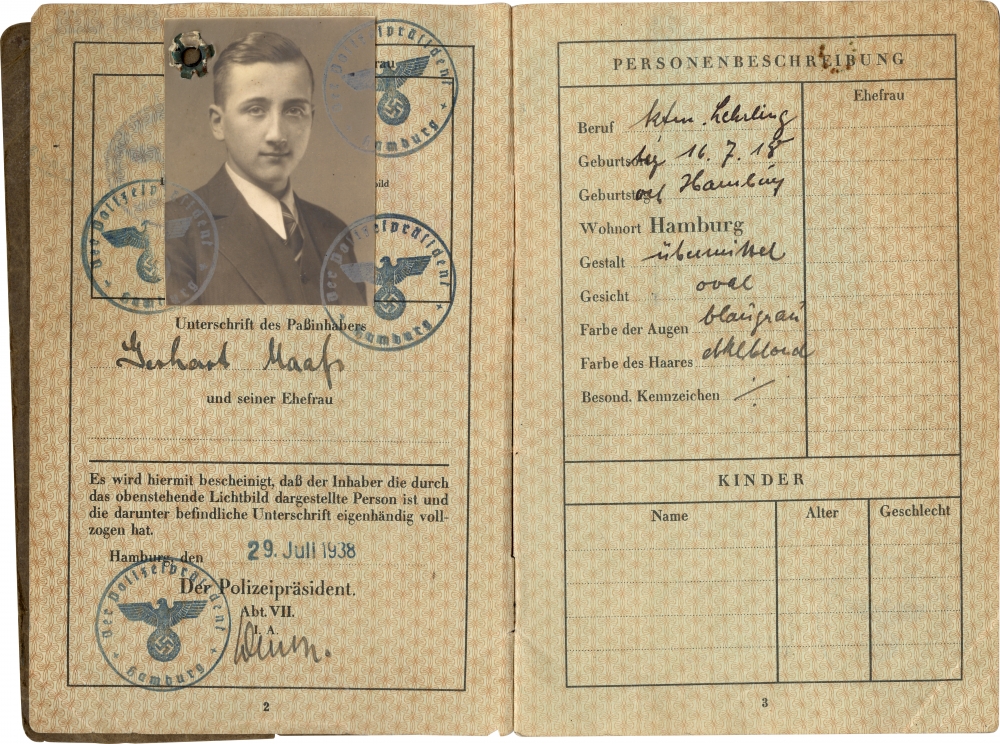 Der Polizeipräsident
Hamburg
Der Polizeipräsident
Hamburg
Der Polizeipräsident
Hamburg
Unterschrift des Paßinhabers
Gerhart Maaß
und seiner Ehefrau
Es wird hiermit bescheinigt, daß der Inhaber die durch
das obenstehende Lichtbild dargestellte Person ist und
die darunter befindliche Unterschrift eigenhändig voll-
zogen hat.
Hamburg, den 29. Juli 1938
Der Polizeipräsident.
Abt. VII.
I. A.
Der Polizeipräsident
Hamburg
2
PERSONENBESCHREIBUNG
Ehefrau
Beruf kfm. Lehrling
Geburtsort tag 16. 7. 18
Geburtstag ort Hamburg
Wohnort Hamburg
Gestalt übermittel
Gesicht oval
Farbe der Augen blaugrau
Farbe des Haares dklblond
Besond. Kennzeichen /
KINDER
Name Alter Geschlecht
3